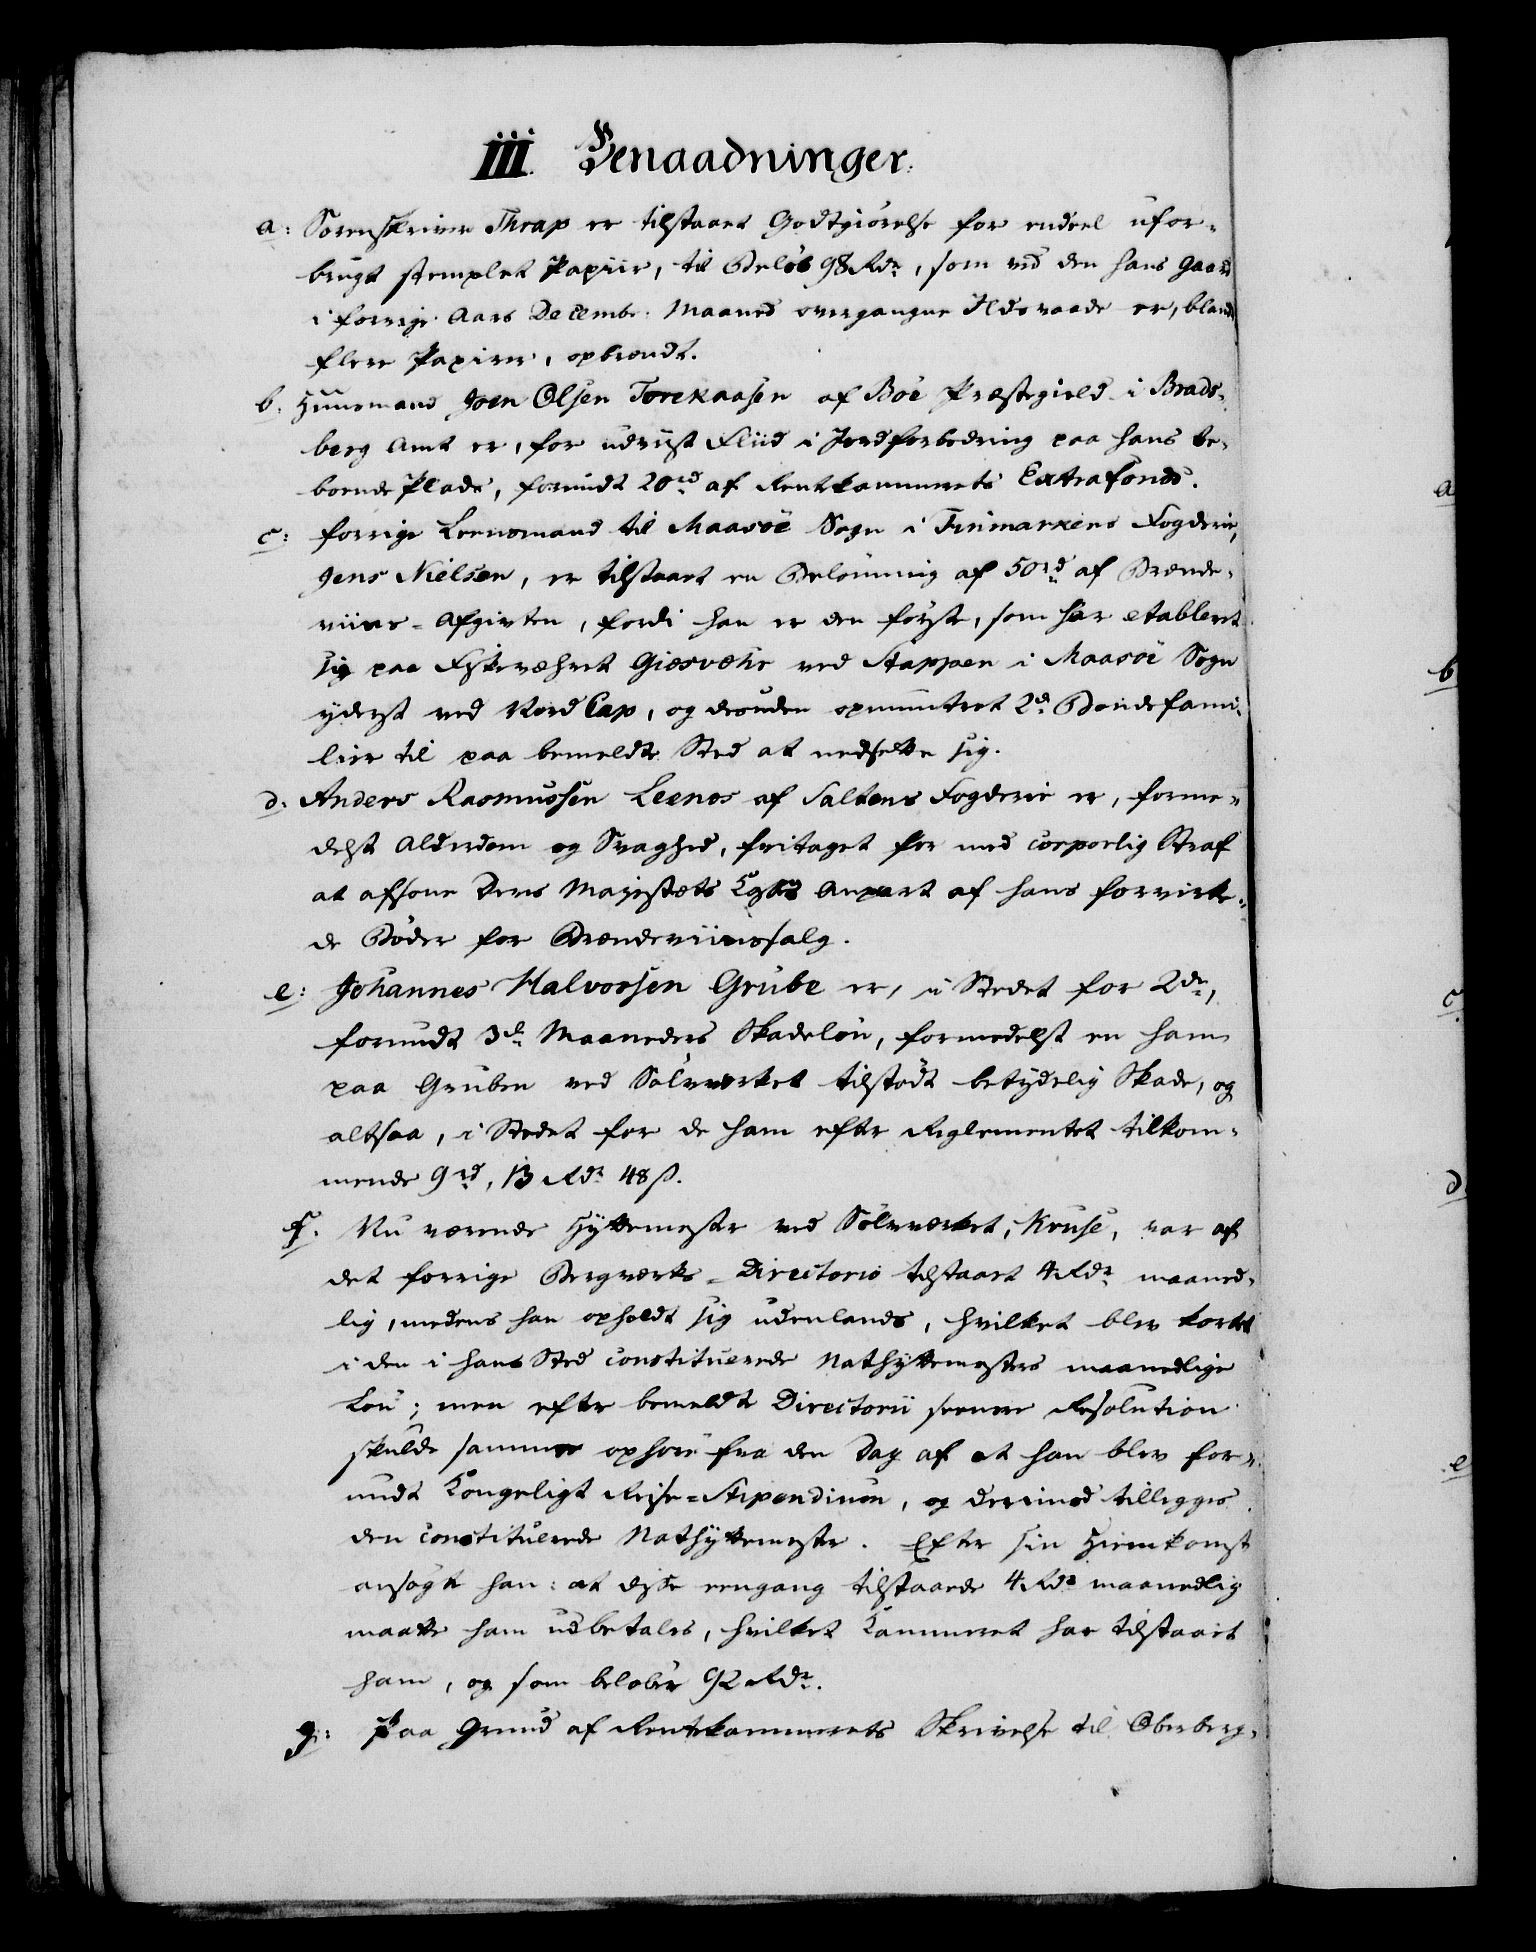 III. Benaadninger.
a: Sorenskriver Thrap er tilstaaet Godtgiörelse for endeel ufor-
brugt stemplet Papiir, til Belöb 98 Rdr, som ved den hans Gaard
i forrige Aars Decembr. Maaned overgangne Ildsvaade er, blandt
flere Papirer, opbrændt.
b. Huusmand Joen Olsen Torekaasen af Böe Præstegield i Brads-
berg Amt er, for udviist Fliid i Jordforbedring paa hans be-
boende Plads, forundt 20rd af Rentekammerets Extrafonds.
c: forrige Leensmand til Maasöe Sogn i Finmarkens Fogderie,
Jens Nielsen, er tilstaaet en Belönning af 50rd af Brænde-
viins-Afgivten, fordi han er den förste, som har etableret
sig paa Fiskeværet Giesvær ved Stappen i Maasöe Sogn
yderst ved Nord Cap, og desuden opmuntret 2de Bondefami-
lier til paa bemeldte Sted at nedsette sig.
d: Anders Rasmussen Leenos af Saltens Fogderie er, forme-
delst Alderdom og Svaghed, fritaget for med corporlig Straf
at afsone Deres Majestæts Kasses Anpart af hans forvirke-
de Böder for Brændeviinssalg.
e: Johannes Halvorsen Grube er, i Stedet for 2de,
forundt 3de Maaneders Skadelön, formedelst en ham
paa Gruben ved Sölvverket tilstödt betydelig Skade, og
altsaa, i Stedet for de ham efter Reglementet tilkom-
mende 9rd, 13 Rdr 48 ß.
f. Nu værende Hyttemester ved Sölvværket, Kruse, var af
det forrige Bergværks-Directorio tilstaaet 4 Rdr maaned-
lig, medens han opholdt sig udenlands, hvilket blev kortet
i den i hans Sted constituerede Nathyttemesters maanedlige
Lön; men efter bemeldte Directorii seenere Resolution
skulde samme ophöre fra den Dag af at han blev for-
undt Kongeligt Reise-Stipendium, og derimod tillegges
den constituerede Nathyttemester. Efter sin Hiemkomst
ansögte han: at disse eengang tilstaaede 4 Rdr maanedlig
maatte ham udbetales, hvilket Kammeret har tilstaaet
ham, og som belöber 92 Rdr.
g: Paa Grund af Rentekammerets Skrivelse til Oberberg-
a
b
c.
d
e